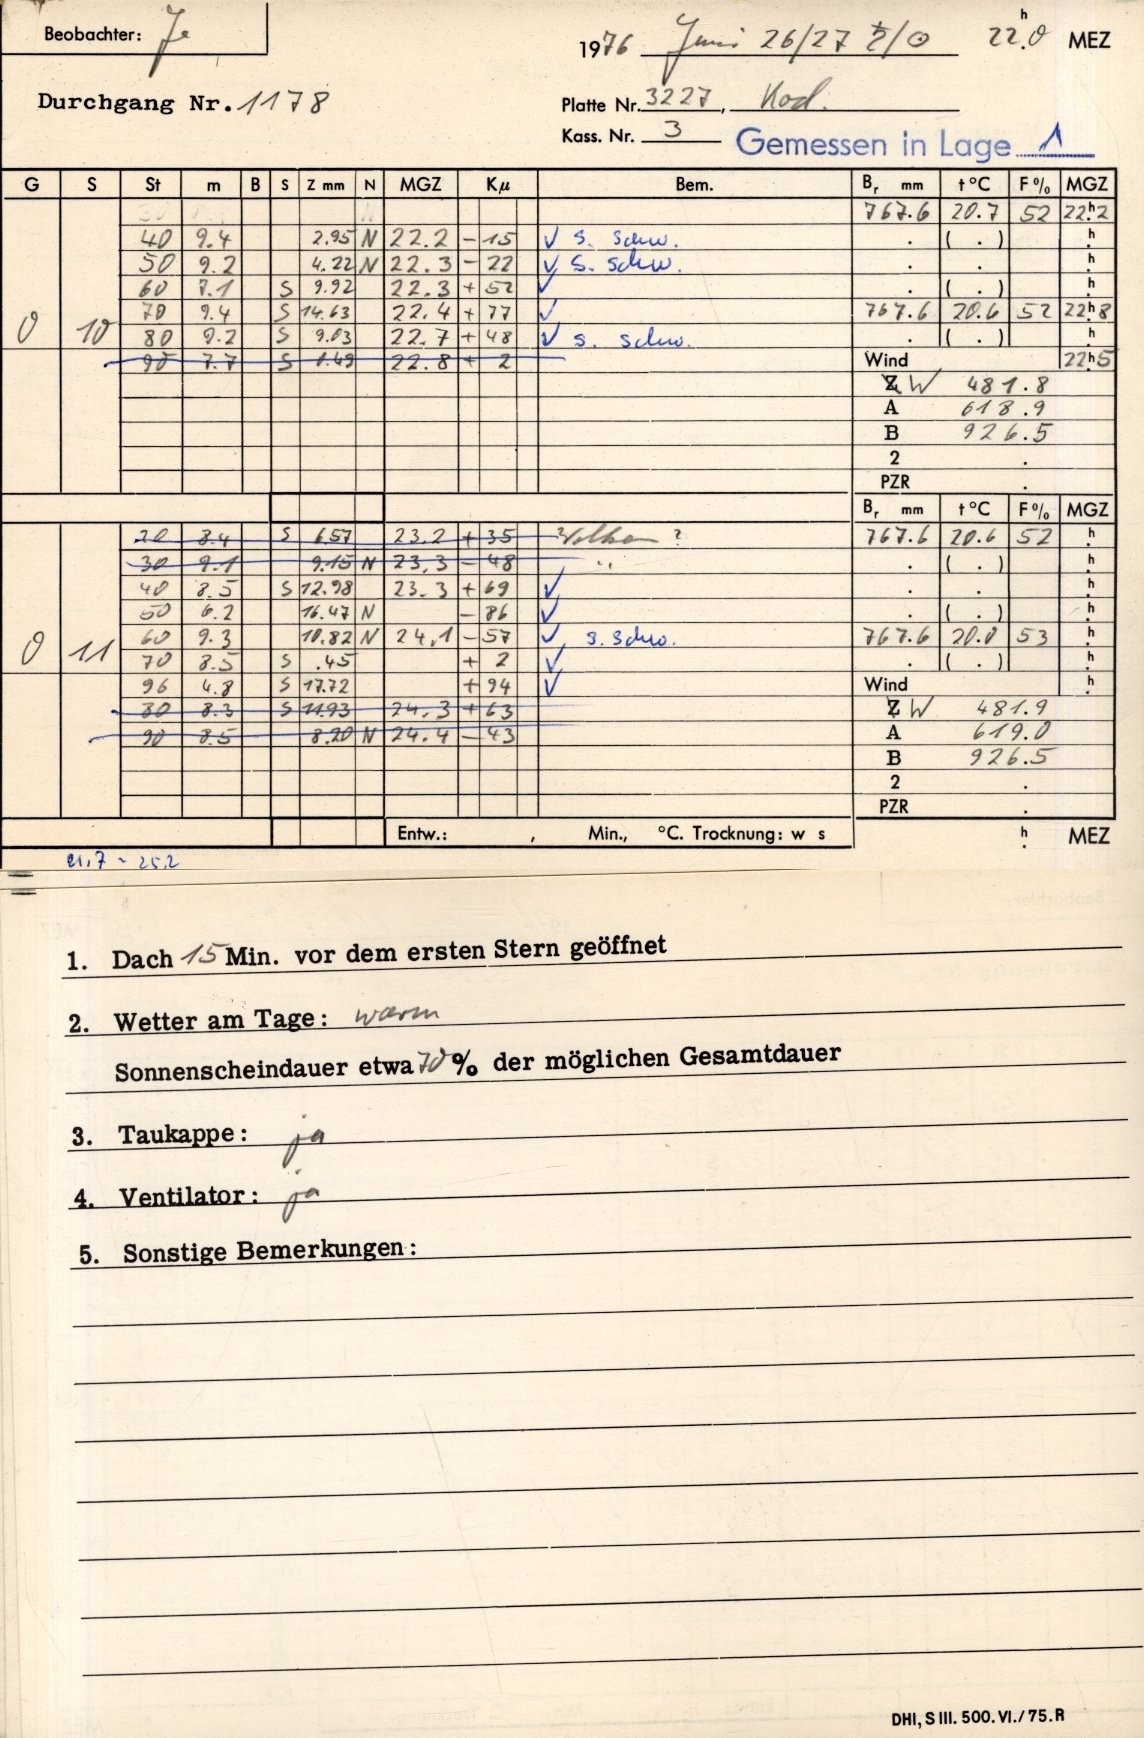 Beobachter: Je
1976 Juni 26/27 ♄/☉ 22.ʰ0 MEZ
Durchgang Nr. 1178
Platte Nr. 3227, Kod.
Kass. Nr. 3
Gemessen in Lage 1
G S St m B S Z mm N MGZ Kµ Bem. Bᵣ mm t°C F% MGZ
767.6 20.7 52 22ʰ.2
40 9.4 2.95 N 22.2 - 15 ✓ s. schw. . ( . ) ʰ.
50 9.2 4.22 N 22.3 - 22 ✓ s. schw. . . ʰ.
60 7.1 S 9.92 22.3 + 52 ✓ . ( . ) ʰ.
70 9.4 S 14.63 22.4 + 77 ✓ 767.6 20.6 52 22ʰ.8
0 10 80 9.2 S 9.03 22.7 + 48 ✓ s. schw. . ( . ) ʰ.
90 7.7 S 0.49 22.8 + 2 Wind 22ʰ.5
Z W 481.8
A 618.9
B 926.5
2 .
PZR .
Bᵣ mm t°C F% MGZ
20 8.4 S 6.57 23.2 + 35 Wolken ? 767.6 20.6 52 ʰ.
30 9.1 9.15 N 23.3 - 48 " . ( . ) ʰ.
40 8.5 S 12.98 23.3 + 69 ✓ . . ʰ.
50 6.2 16.47 N - 86 ✓ . ( . ) ʰ.
60 9.3 10.82 N 24.1 - 57 ✓ s. schw. 767.6 20.0 53 ʰ.
0 11 70 8.5 S .45 + 2 ✓ . ( . ) ʰ.
96 4.8 S 17.72 + 94 ✓ Wind ʰ.
80 8.3 S 11.93 24.3 + 63 Z W 481.9
90 8.5 8.20 N 24.4 - 43 A 619.0
B 926.5
2 .
PZR .
Entw.: , Min., °C. Trocknung: w s ʰ. MEZ
21,7 - 25,2
1. Dach 15 Min. vor dem ersten Stern geöffnet
2. Wetter am Tage: warm
Sonnenscheindauer etwa 70 % der möglichen Gesamtdauer
3. Taukappe: ja
4. Ventilator: ja
5. Sonstige Bemerkungen:
DHI, S III. 500. VI./75. R